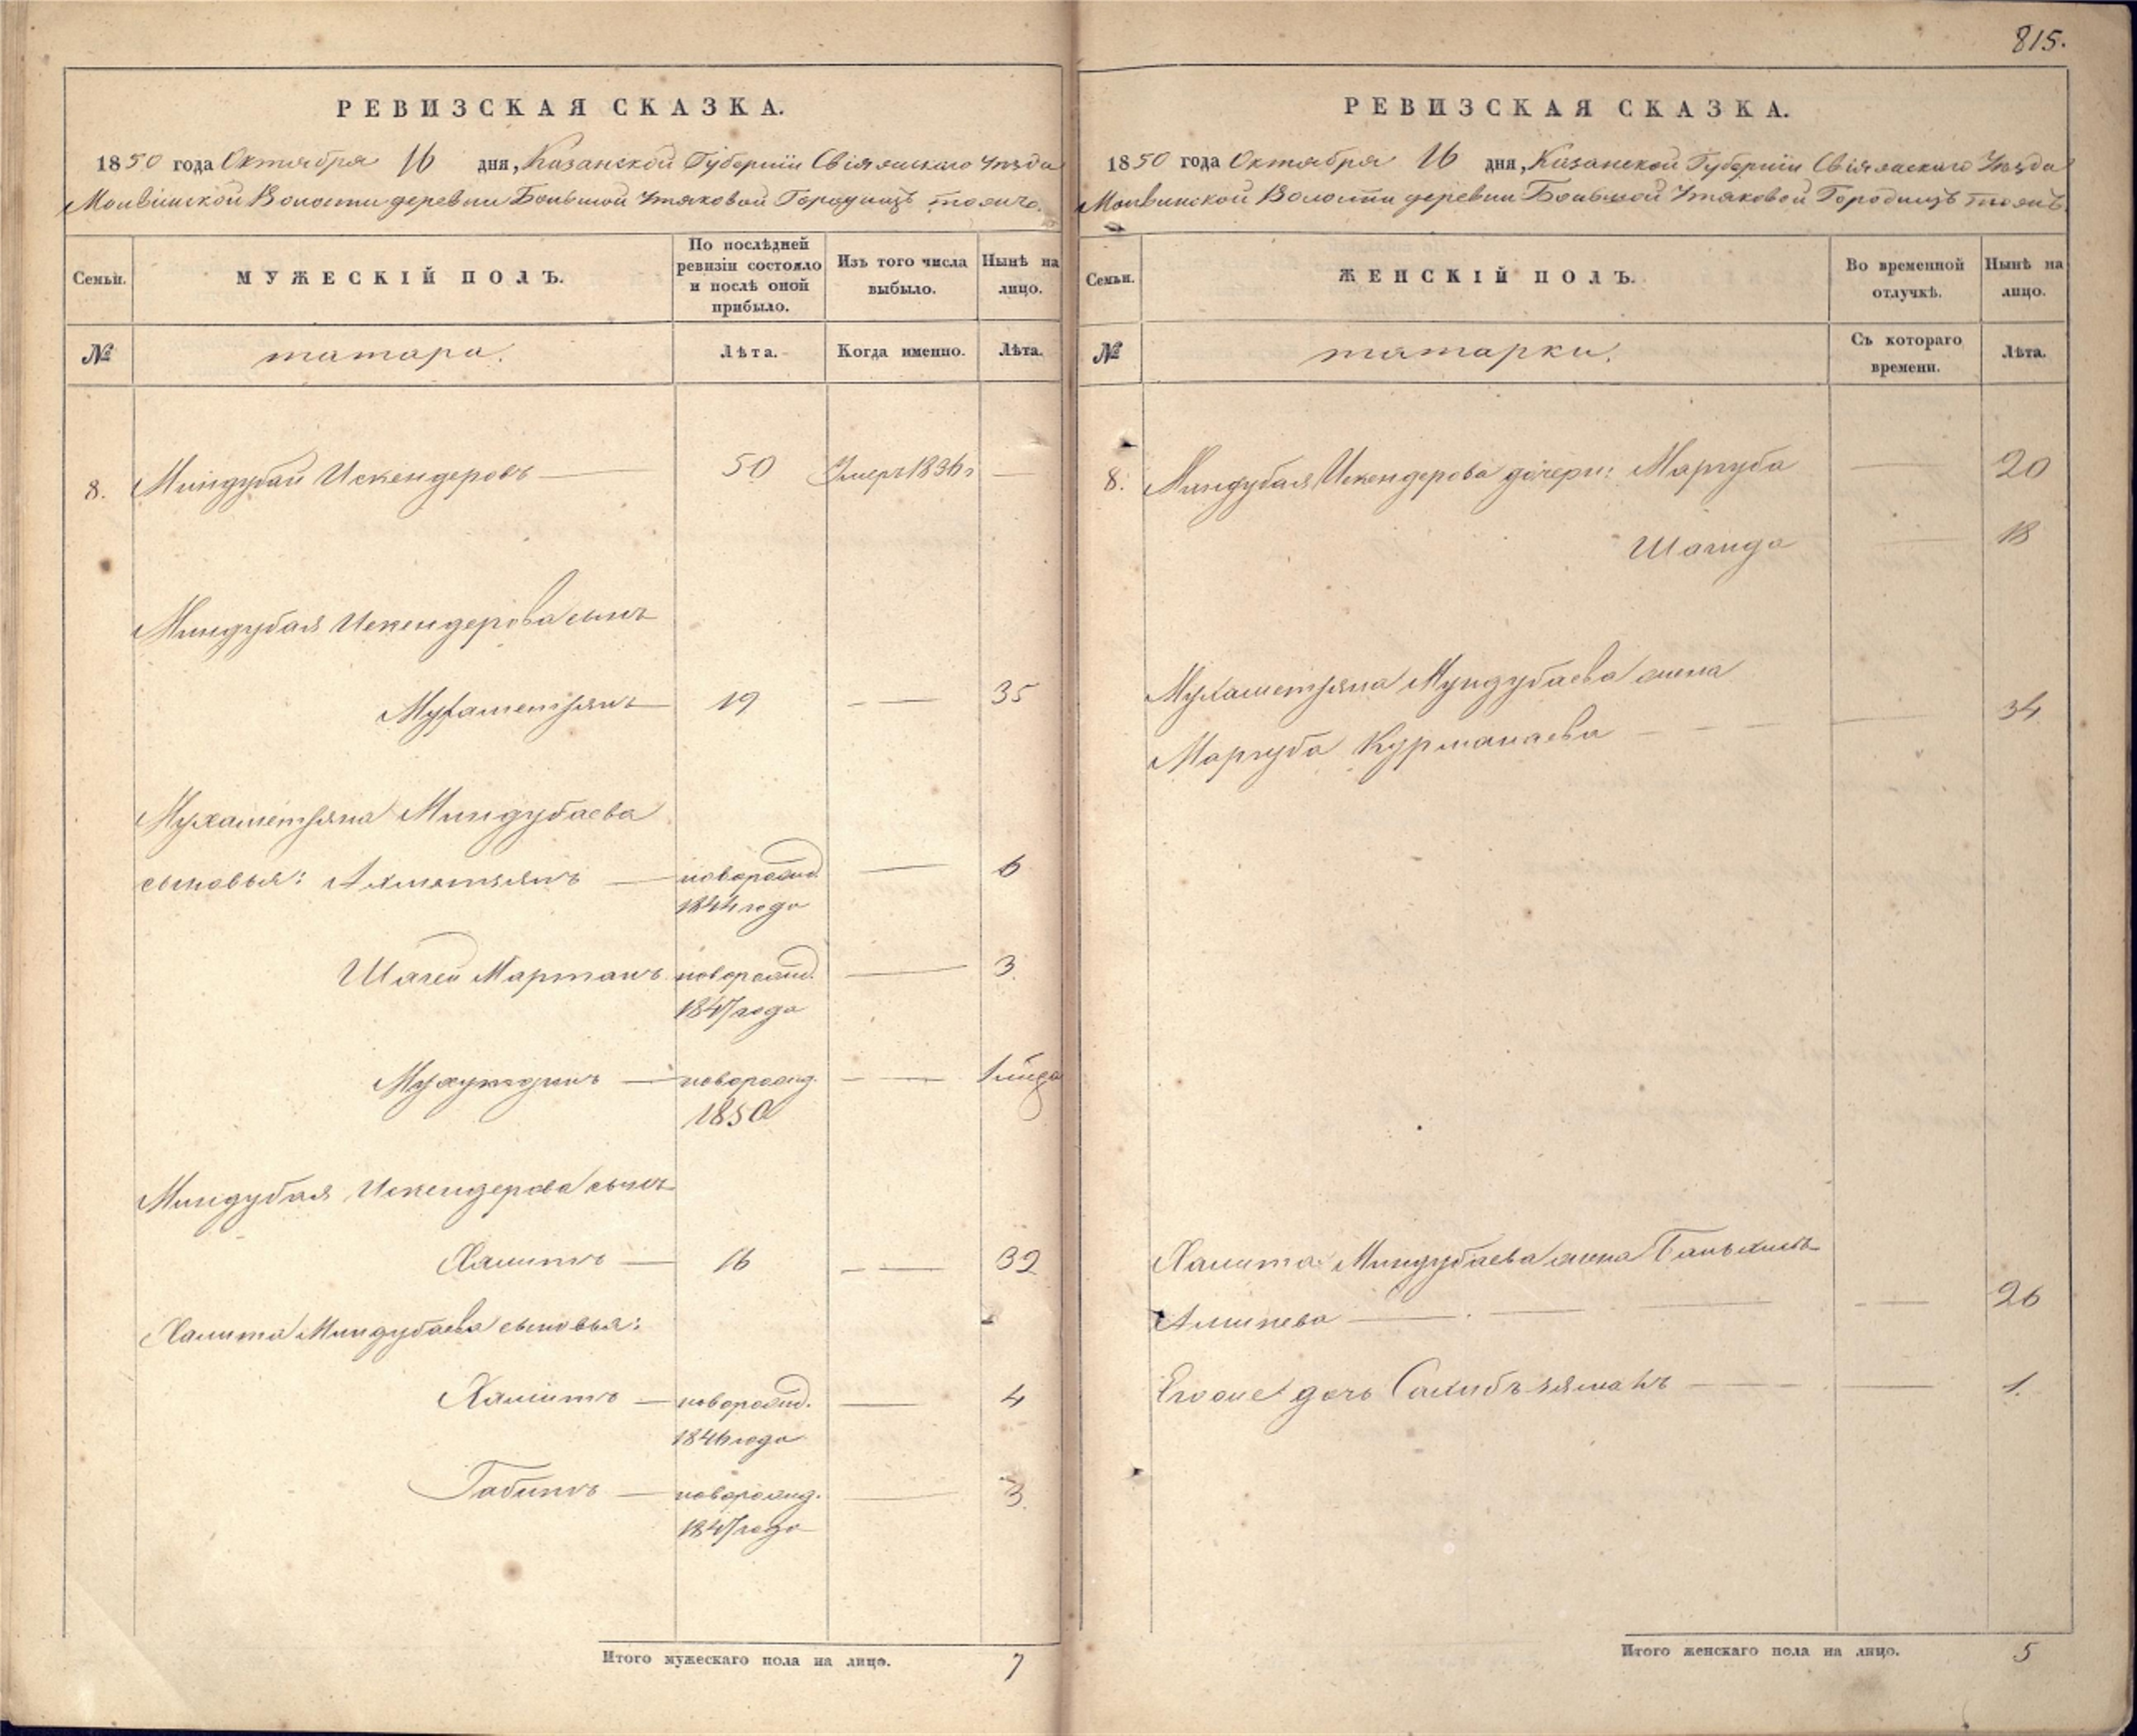 815.
РЕВИЗСКАЯ СКАЗКА.
1850 года Октября 16 дня, Казанской Губернiи Свiяжскаго Уѣзда
Молвинской Волости деревни Большой Утяковой Городищъ тожъ
Семьи.
МУЖЕСКIЙ ПОЛЪ.
По послѣдней ревизiи состояло и послѣ оной прибыло.
Изъ того числа выбыло.
Нынѣ на лицо.
№
татара.
Лѣта.
Когда именно.
Лѣта.
8. Миндубай Искендеровъ — 50 Умеръ 1836 г —
Миндубая Искендерова сынъ
Мухаметзянъ — 19 — — 35
Мухаметзяна Миндубаева
сыновья: Ахметзянъ — новорожд. — 6
1844 года
Шагей Мартанъ новорожд. — 3
1847 года
— новорожд. — — 1 мѣся
1850
Миндубая Искендерова сынъ
Халитъ — 16 — — 32
Халита Миндубаева сыновья:
Хамитъ — новорожд. — 4
1846 года
Габитъ — новорожд. — 3.
1847 года
Итого мужескаго пола на лицо. 7
РЕВИЗСКАЯ СКАЗКА.
1850 года Октября 16 дня, Казанской Губернiи Свiяжскаго Уѣзда
Молвинской Волости деревни Большой Утяковой Городищъ тожъ
Семьи.
ЖЕНСКIЙ ПОЛЪ.
Во временной отлучкѣ.
Нынѣ на лицо.
№
татарки.
Съ котораго времени.
Лѣта.
8. Миндубая Искендерова дочери: Маргуба — 20
Шагида — 18
Мухаметзяна Мундубаева жена
Маргуба Курманаева — — — 34
Халита Миндубаева жена
Алишева — — — — — 26
Его же дочь Сахибъ зямалъ — — — 1.
Итого женскаго пола на лицо. 5